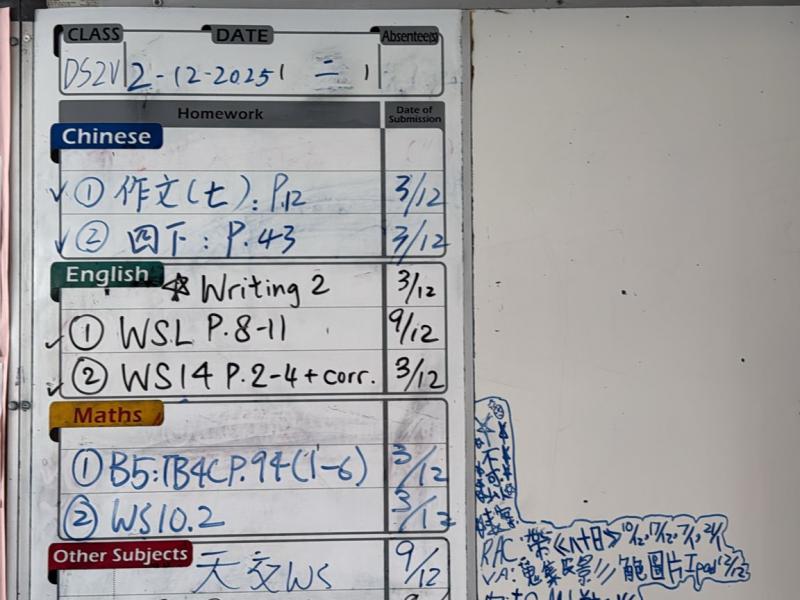 CLASS DATE Absentee(s)
DS2V 2-12-2025 ( 二 )
Homework Date of Submission
Chinese
✓ ① 作文(七): P.12 3/12
✓ ② 四下: P.43 3/12
English ☆ Writing 2 3/12
✓ ① WSL P.8-11 9/12
✓ ② WS14 P.2-4 + corr. 3/12
Maths
① B5: TB4C P.94 (1-6) 3/12
② WS10.2 3/12
Other Subjects 天交WS 9/12
不可
RAC: 帶
VA: 圖片 Ipad